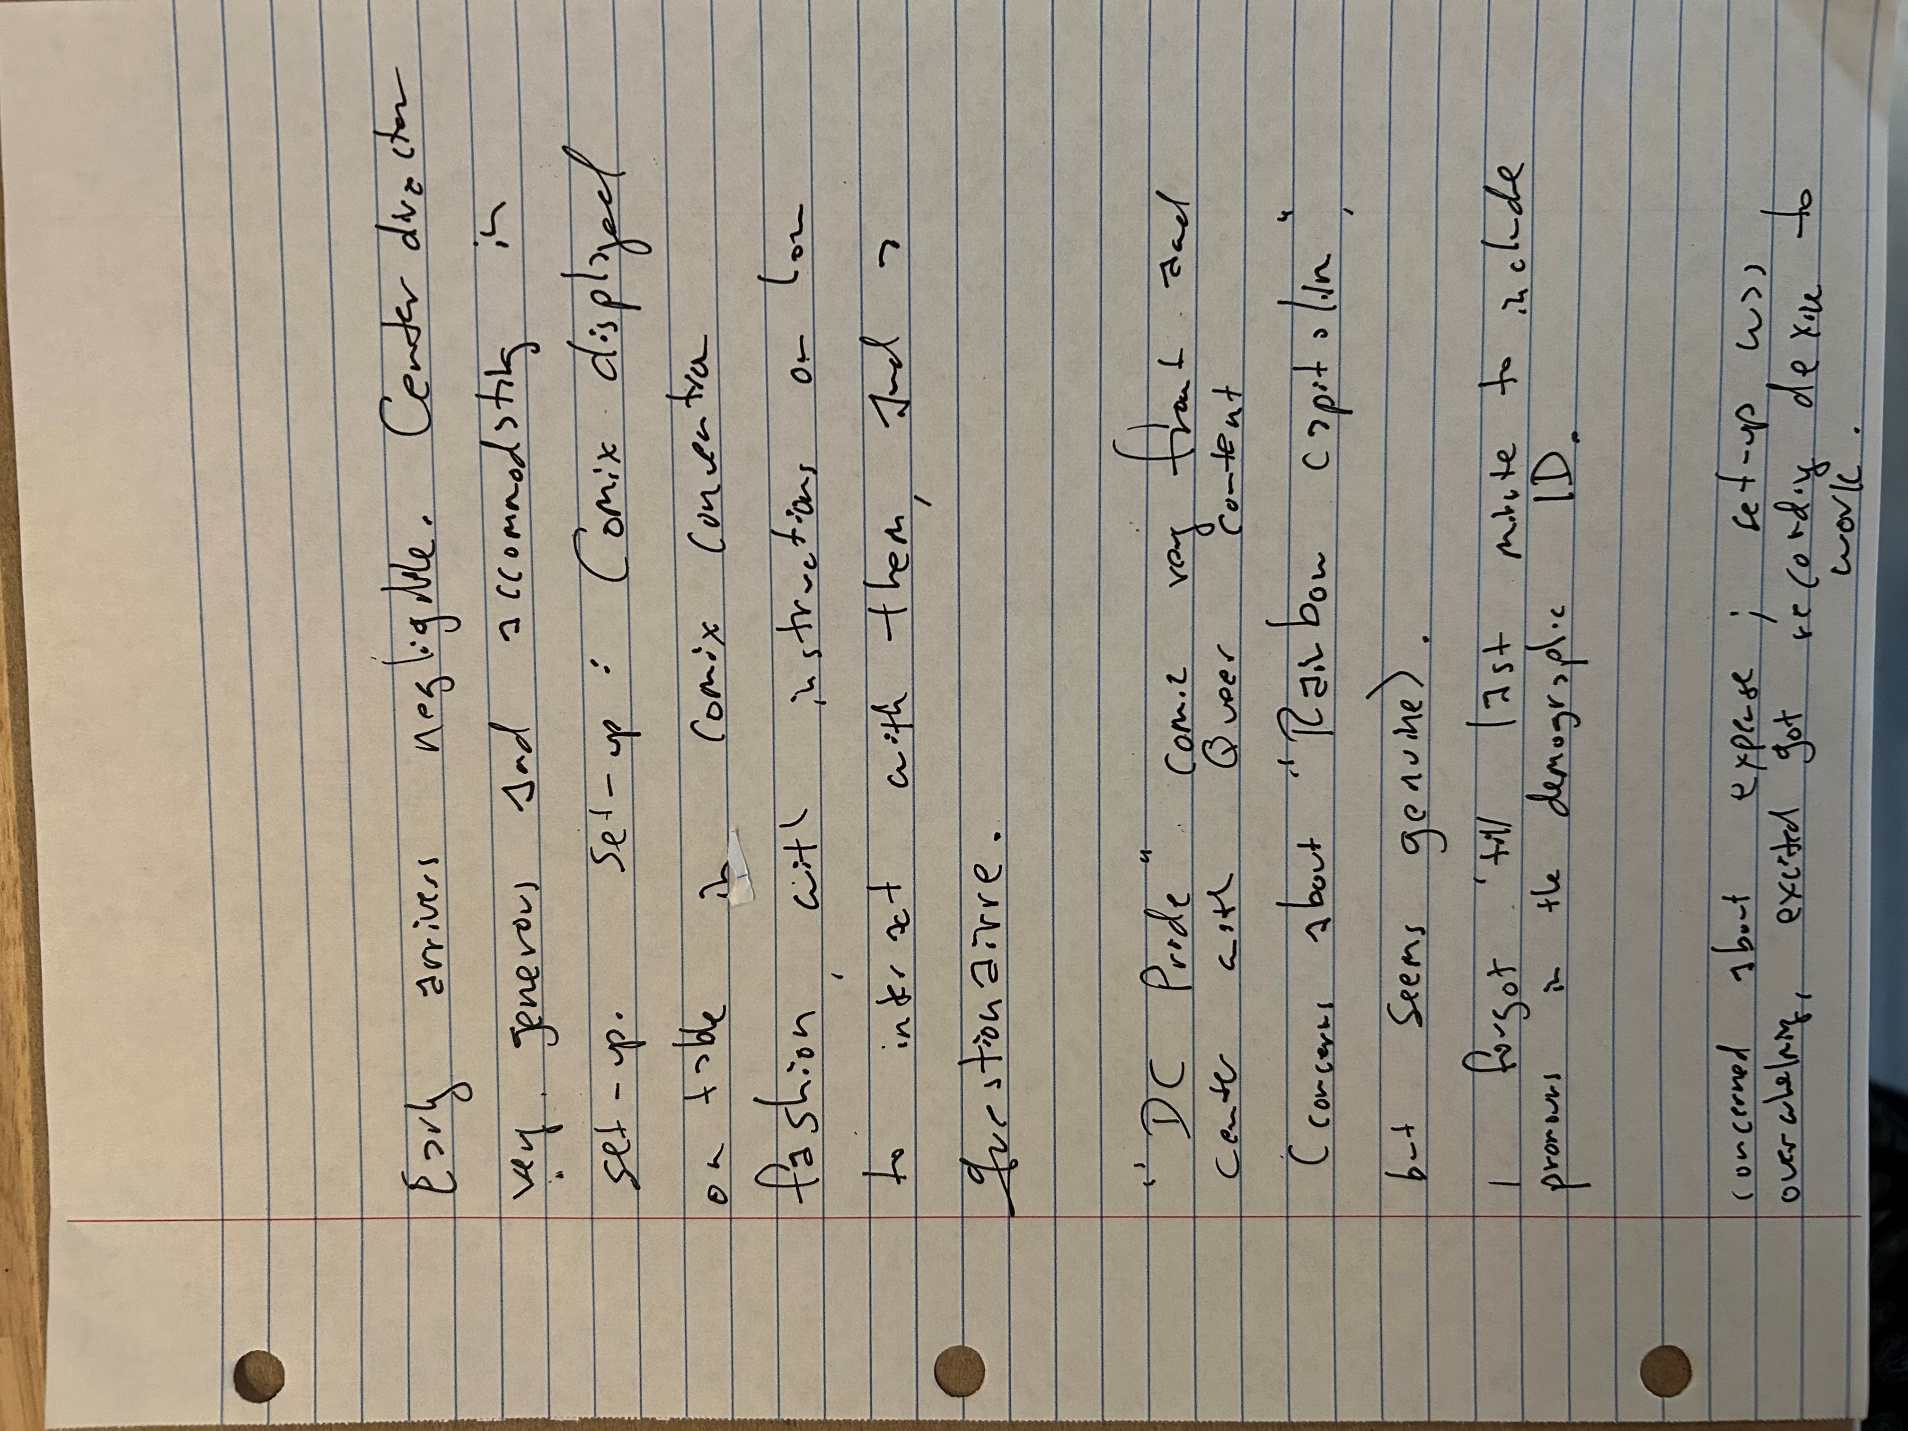 Early arrivers negligible. Center director
very generous and accommodating in
set-up. Set-up: Comix displayed
on table in Comix Convention
fashion with instructions on how
to interact with them, and a
questionairre.
"DC Pride" comic very front and
center with Queer content
(concerns about "Rainbow capitolim",
but seems genuine).
I forgot 'till last minute to include
pronouns in the demographic ID.
concerned about expense; set-up was
overwhelming, excited got recording dexice to
work.